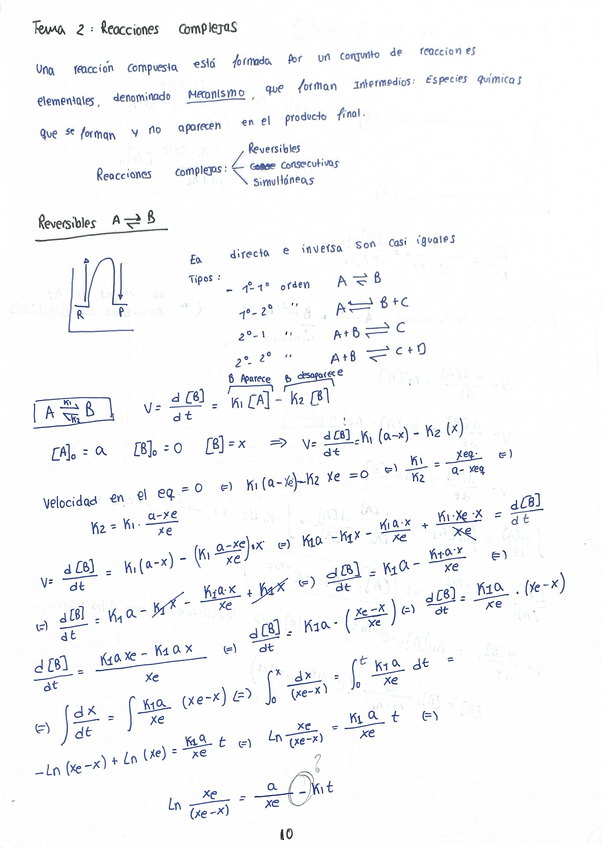 Tema 2: Reacciones Complejas
Una reacción compuesta está formada por un conjunto de reacciones
elementales, denominado Mecanismo, que forman Intermedios: Especies químicas
que se forman y no aparecen en el producto final.
Reacciones complejas:
Reversibles
Consecutivas
Simultáneas
Reversibles A ⇌ B
Ea directa e inversa son casi iguales
R P
Tipos:
- 1º-1º orden A ⇌ B
1º-2º " A ⇌ B+C
2º-1 " A+B ⇌ C
2º-2º " A+B ⇌ C+D
B Aparece B desaparece
A ⇌ B K1 K2 V = d[B]/dt = K1[A] - K2[B]
[A]₀ = a [B]₀ = 0 [B] = x ⇒ V = d[B]/dt = K1(a-x) - K2(x)
Velocidad en el eq = 0 (=) K1(a-xe) - K2 xe = 0 (=) K1/K2 = xeq./a-xeq (=)
K2 = K1 · a-xe/xe
V = d[B]/dt = K1(a-x) - (K1 a-xe/xe)·x (=) K1a - K1x - K1a·x/xe + K1·xe·x/xe = d[B]/dt
(=) d[B]/dt = K1a - K1x - K1a·x/xe + K1x (=) d[B]/dt = K1a - K1a·x/xe (=)
d[B]/dt = K1axe - K1ax/xe (=) d[B]/dt = K1a·(xe-x/xe) (=) d[B]/dt = K1a/xe · (xe-x)
(=) ∫dx/dt = ∫K1a/xe (xe-x) (=) ∫₀ˣ dx/(xe-x) = ∫₀ᵗ K1a/xe dt =
-Ln(xe-x) + Ln(xe) = K1a/xe t (=) Ln xe/(xe-x) = K1a/xe t (=)
?
Ln xe/(xe-x) = a/xe - K1t
10